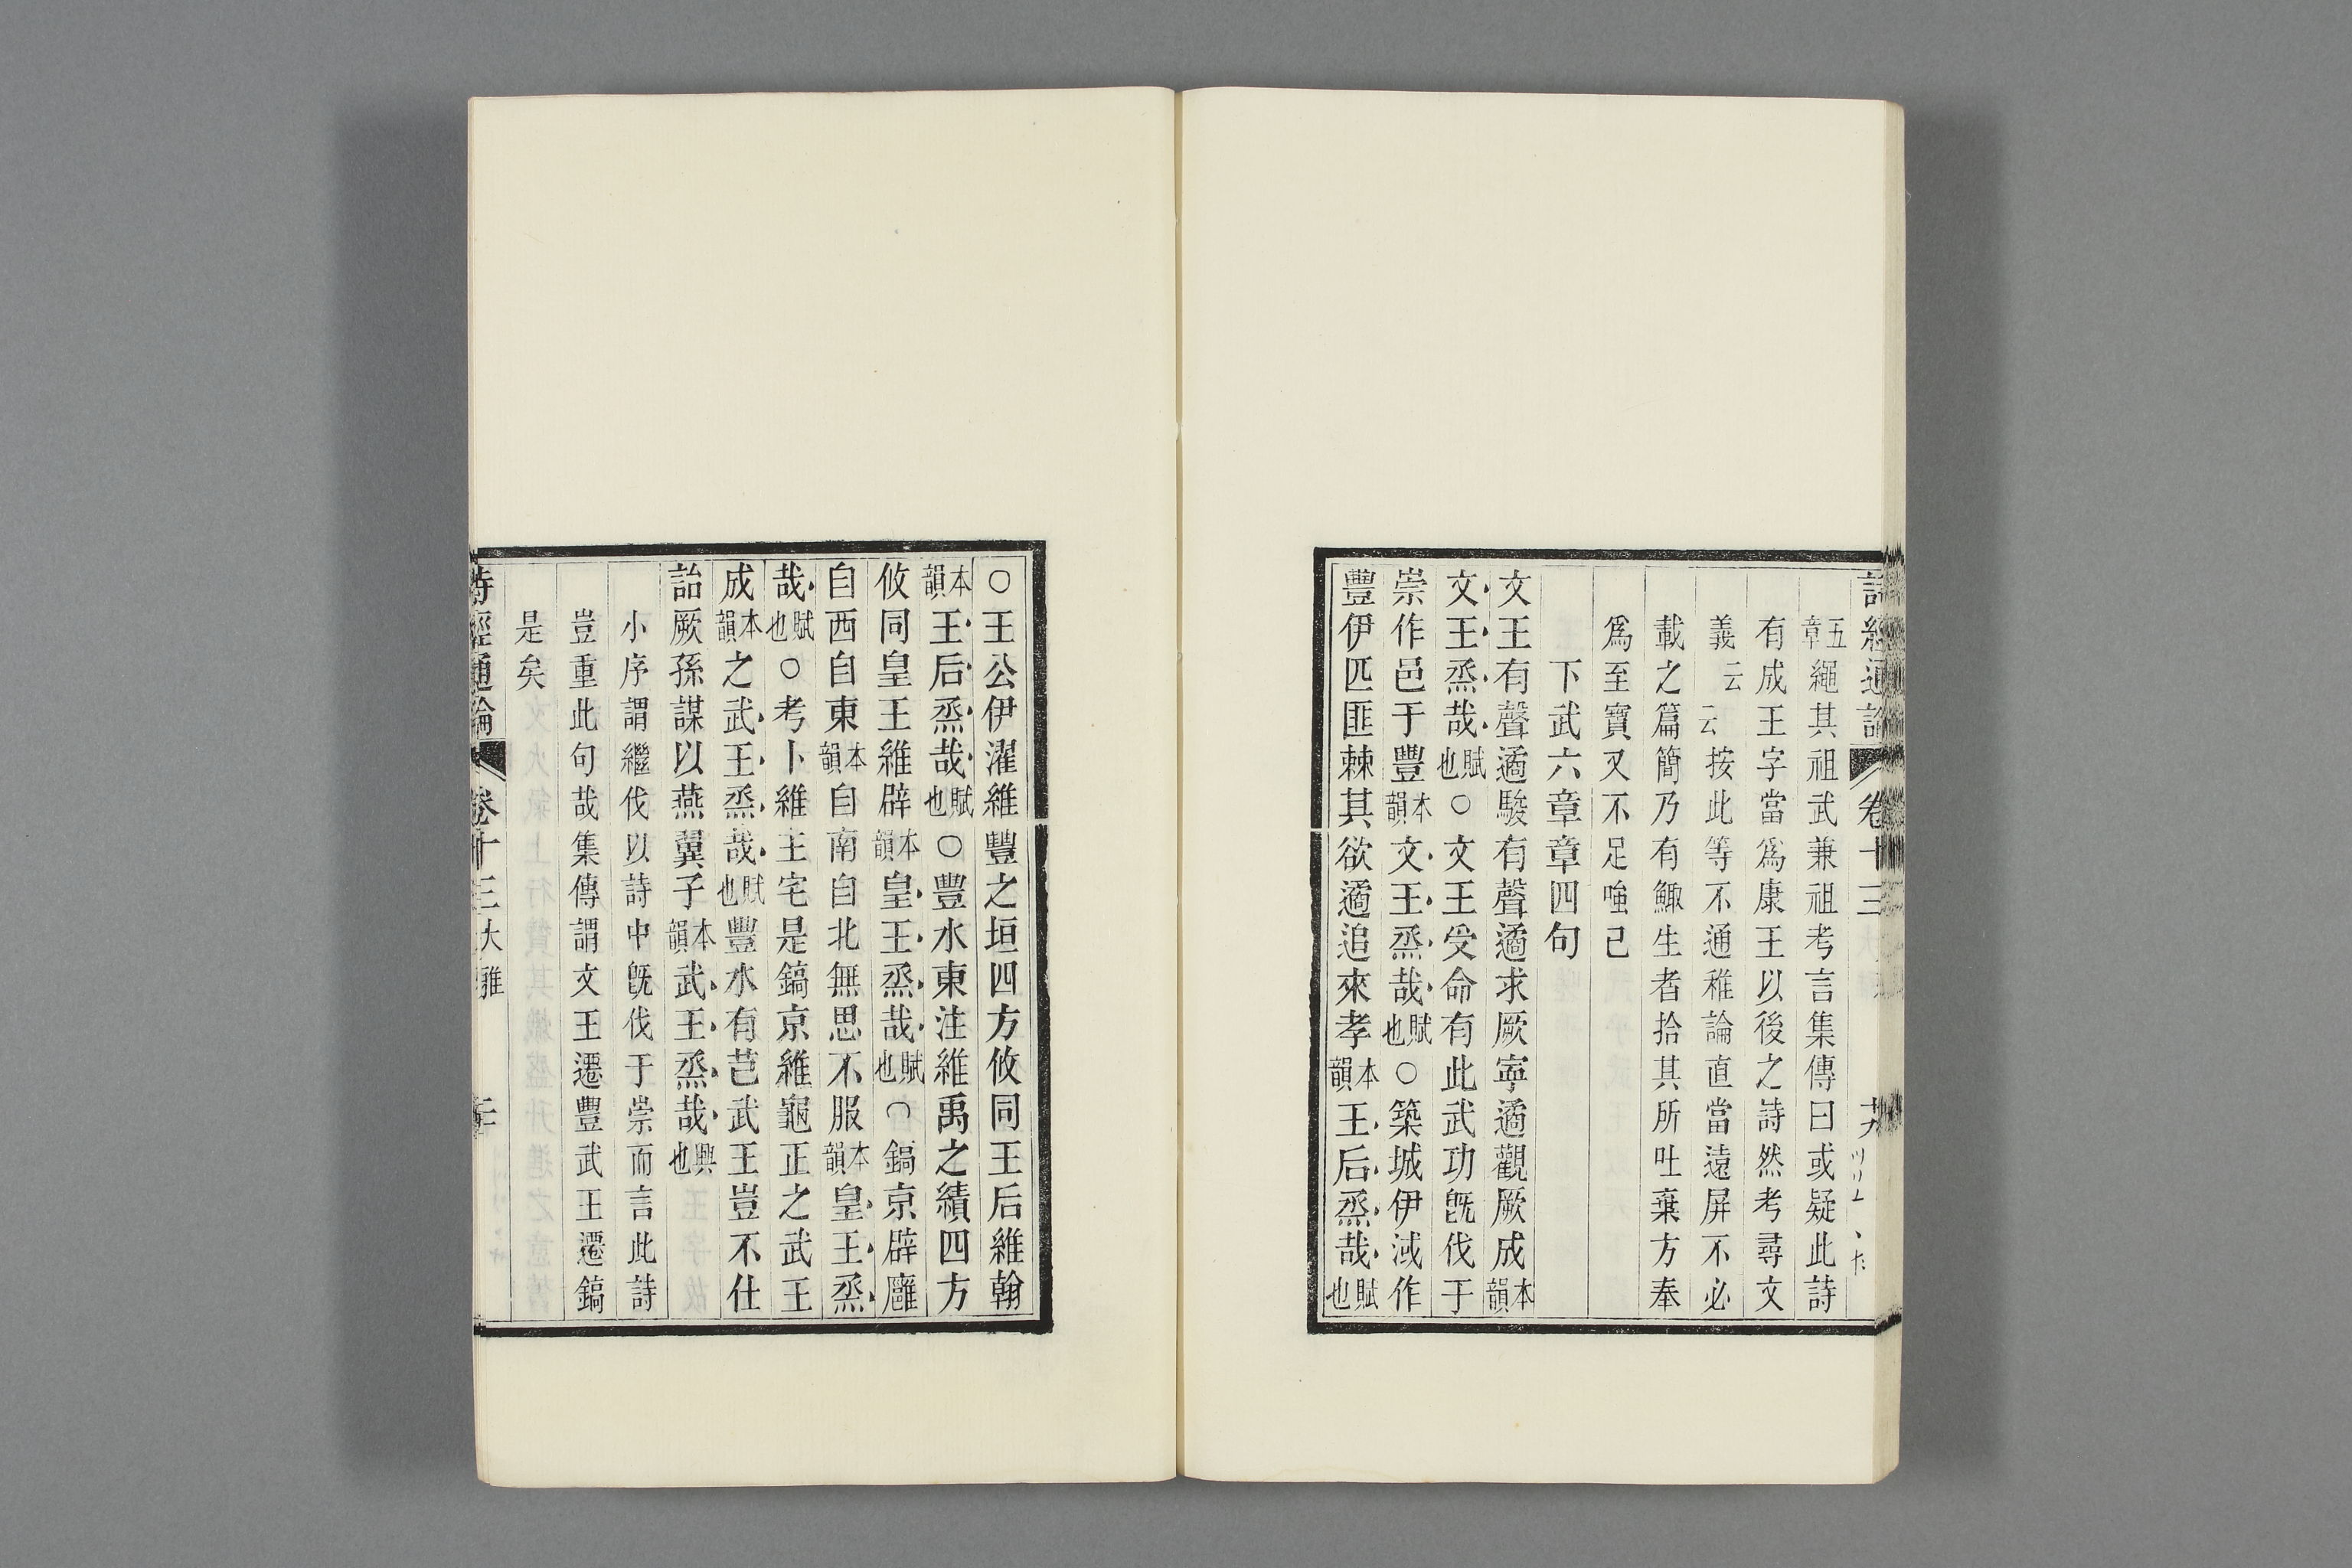 詩經通論 卷十三
五章繩其祖武兼祖考言集傳曰或疑此詩
有成王字當爲康王以後之詩然考尋文
義云云按此等不通稚論直當遠屏不必
載之篇簡乃有鯫生者拾其所吐棄方奉
爲至寶又不足嗤已
下武六章章四句
文王有聲遹駿有聲遹求厥寧遹觀厥成本韻
文王烝哉賦也○文王受命有此武功旣伐于
崇作邑于豐本韻文王烝哉賦也○築城伊淢作
豐伊匹匪棘其欲遹追來孝本韻王后烝哉賦也
○王公伊濯維豐之垣四方攸同王后維翰
本韻王后烝哉賦也○豐水東注維禹之績四方
攸同皇王維辟本韻皇王烝哉賦也○鎬京辟廱
自西自東本韻自南自北無思不服本韻皇王烝
哉賦也○考卜維王宅是鎬京維龜正之武王
成本韻之武王烝哉賦也豐水有芑武王豈不仕
詒厥孫謀以燕翼子本韻武王烝哉興也
小序謂繼伐以詩中旣伐于崇而言此詩
豈重此句哉集傳謂文王遷豐武王遷鎬
是矣
詩經通論 卷十三 大雅